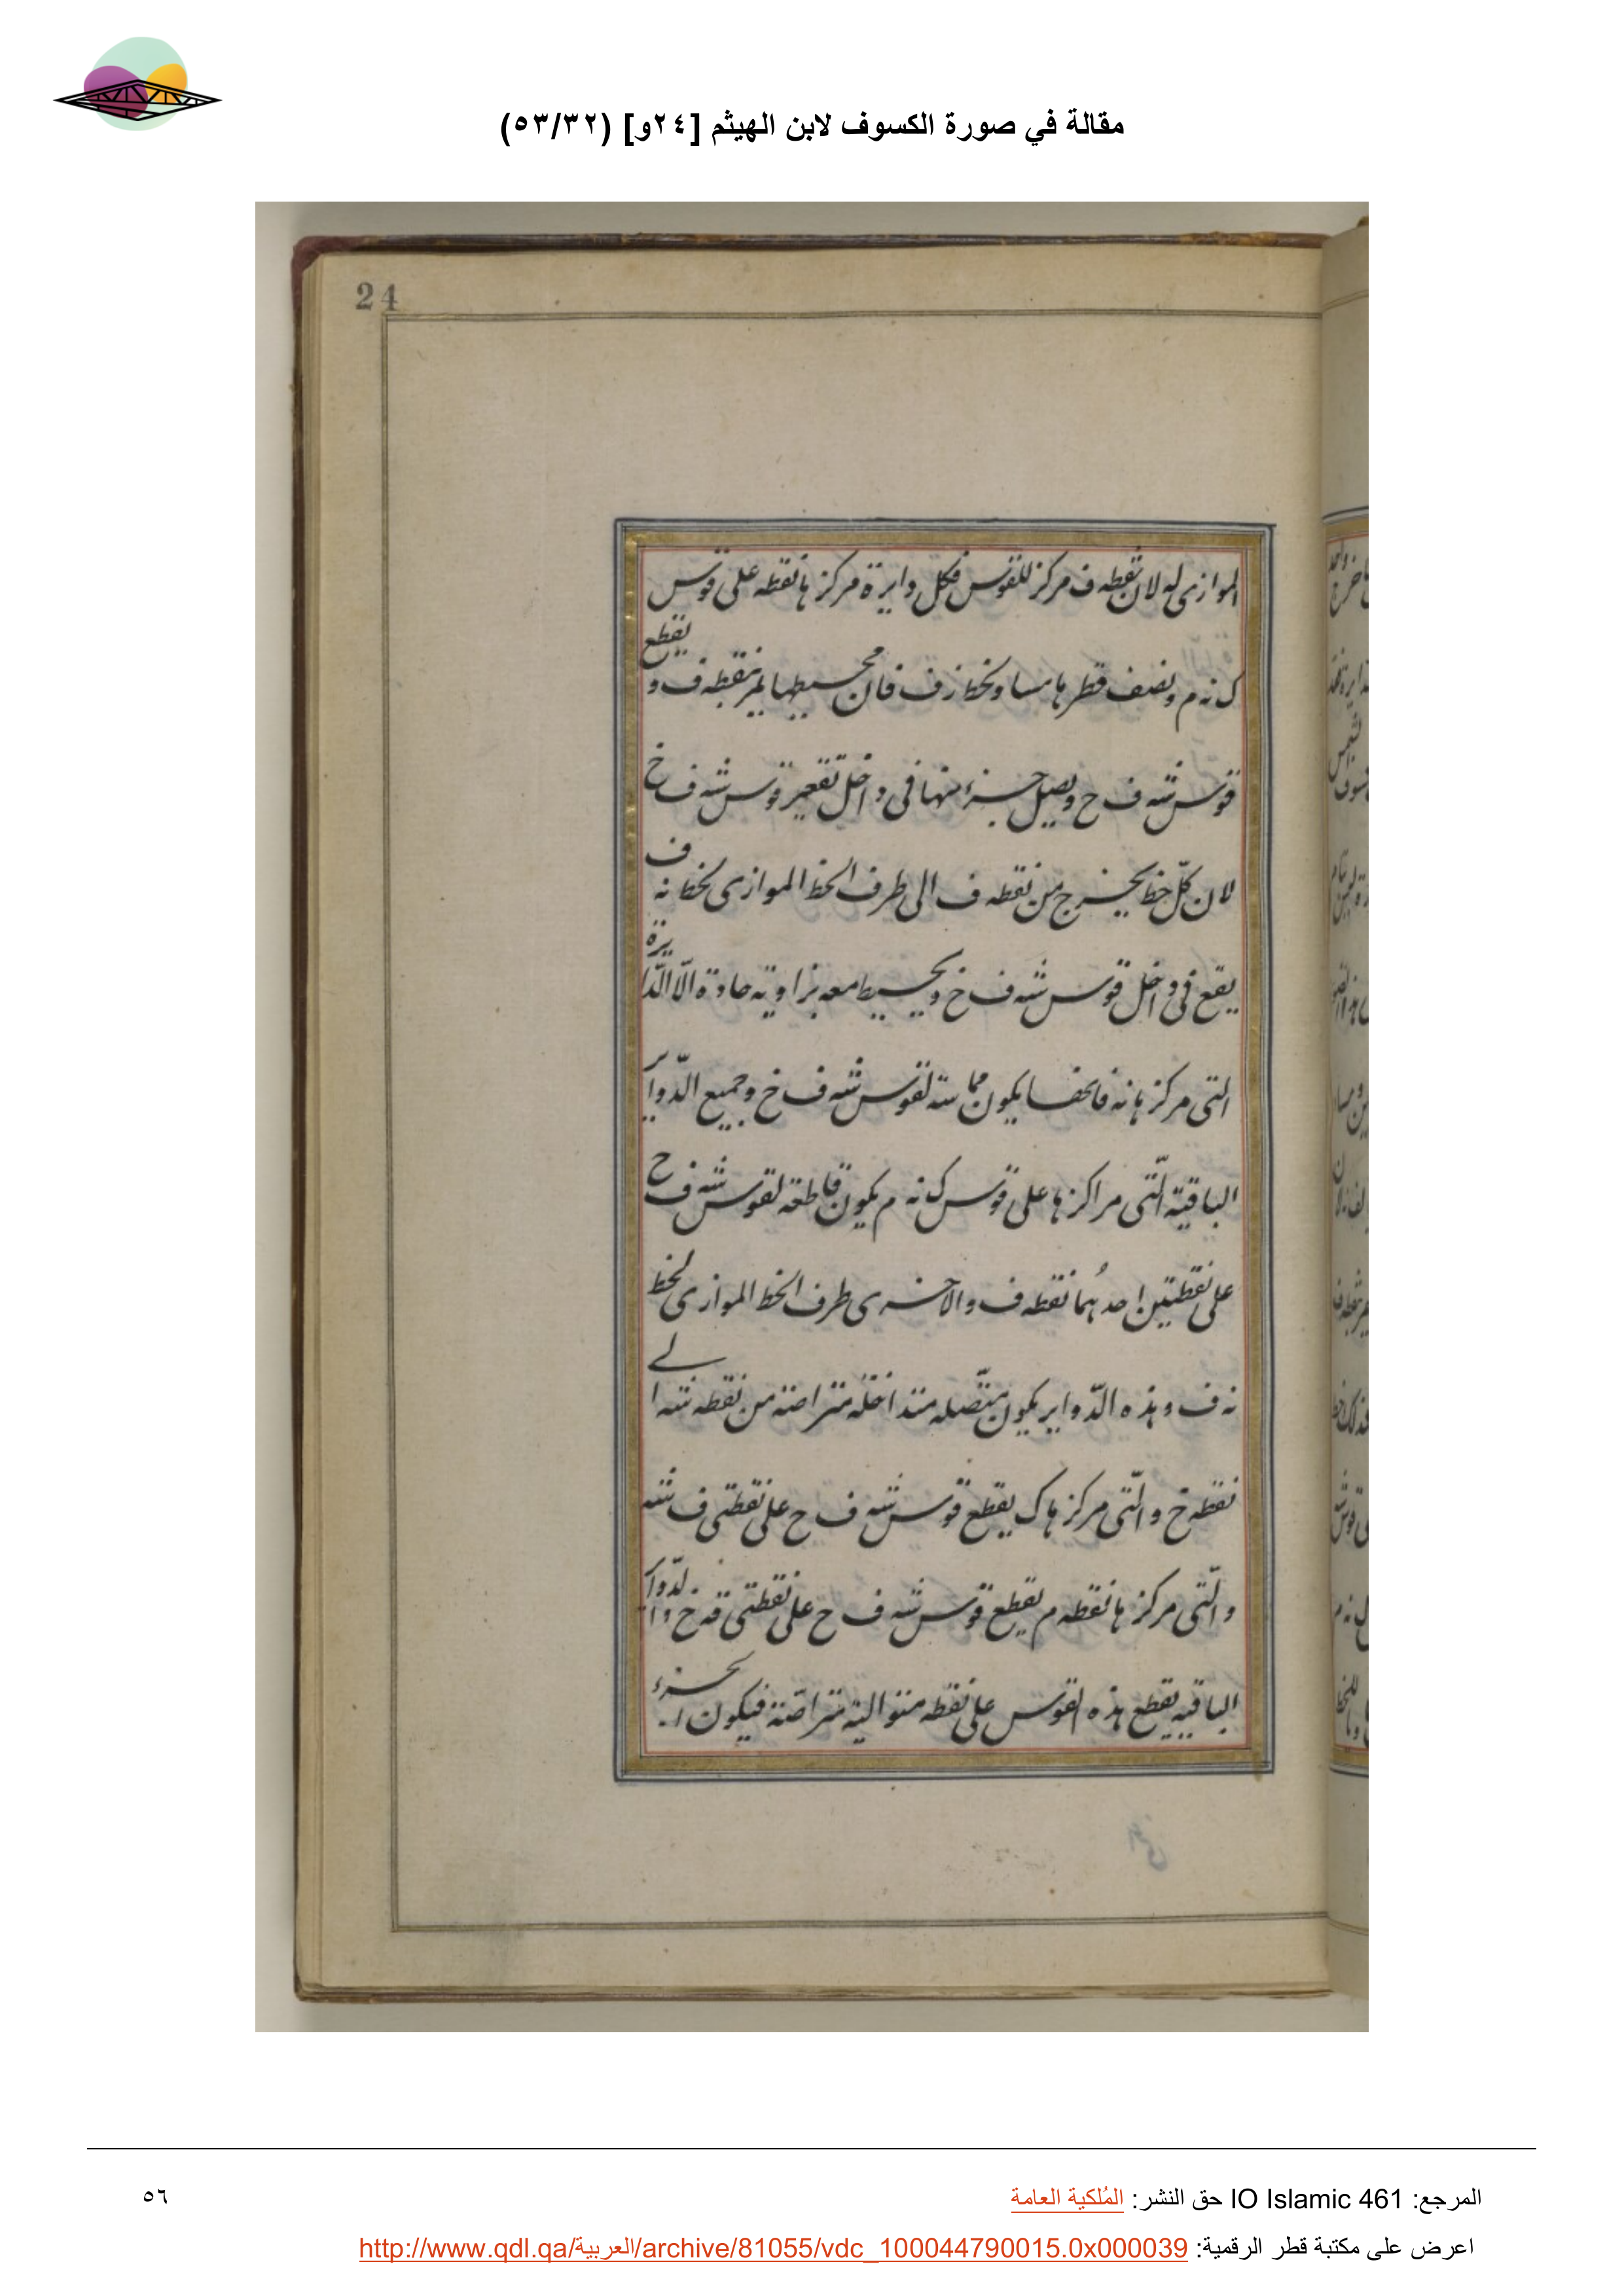 مقالة في صورة الكسوف لابن الهيثم [٢٤و] (٥٣/٣٢)
24
الموازى له لان نقطه ف مركز للقوس فكل دايرة مركزها نقطه على قوس
ك نه م ونصف قطرها مساو لخط ز ف فان محيطها يمر بنقطه ف و يقطع
قوس شه ف خ ويصل جزء منها فى داخل تقعير قوس شه ف خ
لان كلّ خط يخرج من نقطه ف الى طرف الخط الموازى لخط نه ف
يقع فى داخل قوس شه ف خ ويحيط معه بزاوية حادة الّا الدّايرة
التى مركزها نه فانها يكون مماسة لقوس شه ف خ وجميع الدّواير
الباقية الّتى مراكزها على قوس ك نه م يكون قاطعة لقوس شه ف خ
على نقطتين احدهُما نقطه ف والاخرى طرف الخط الموازى لخط
نه ف وهذه الدّواير يكون متّصله متداخله متراصة من نقطه شه الى
نقطه خ والّتى مركزها ك يقطع قوس شه ف ح على نقطتى ف شه
والّتى مركزها نقطه م يقطع قوس شه ف ح على نقطتى ف خ والدّواير
الباقيه يقطع هذه القوس على نقطه متوالية متراصّة فيكون الجزء
المرجع: IO Islamic 461 حق النشر: المُلكية العامة
٥٦
اعرض على مكتبة قطر الرقمية: http://www.qdl.qa/العربية/archive/81055/vdc_100044790015.0x000039